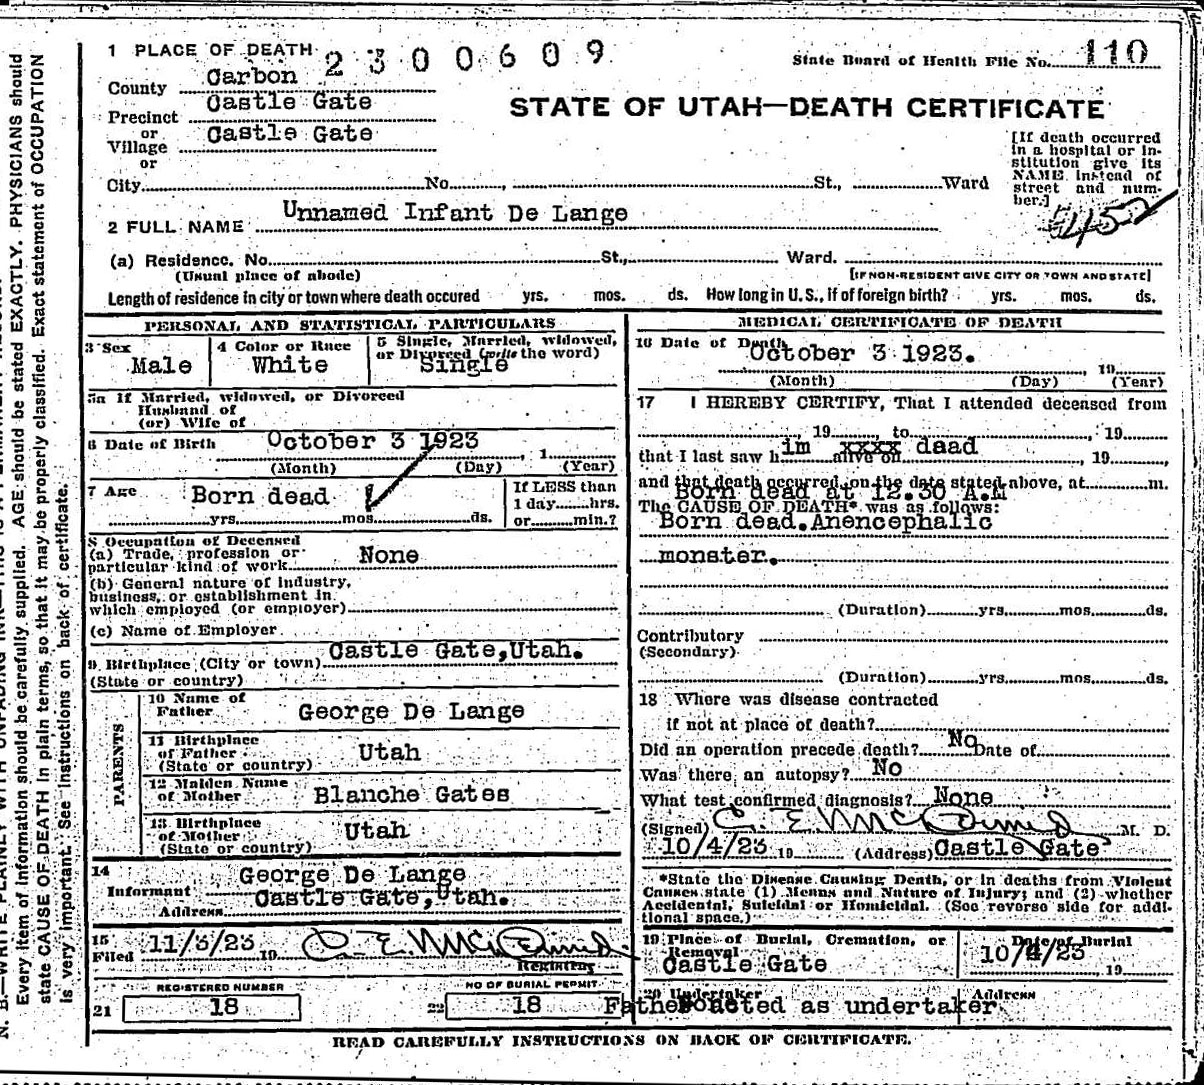 1 PLACE OF DEATH 2300609
State Board of Health File No. 110
County Carbon
Precinct Castle Gate
or
Village Castle Gate
or
STATE OF UTAH—DEATH CERTIFICATE
City No. , St., Ward
[If death occurred
in a hospital or in-
stitution give its
NAME instead of
street and num-
ber.]
452
2 FULL NAME Unnamed Infant De Lange
(a) Residence. No. St., Ward.
(Usual place of abode) [IF NON-RESIDENT GIVE CITY OR TOWN AND STATE]
Length of residence in city or town where death occured yrs. mos. ds. How long in U. S., if of foreign birth? yrs. mos. ds.
PERSONAL AND STATISTICAL PARTICULARS
3 Sex
Male
4 Color or Race
White
5 Single, Married, widowed,
or Divorced (write the word)
Single
5a If Married, widowed, or Divorced
Husband of
(or) Wife of
6 Date of Birth October 3 1923 , 1
(Month) (Day) (Year)
7 Age Born dead
yrs. mos. ds.
If LESS than
1 day hrs.
or min.?
8 Occupation of Deceased
(a) Trade, profession or
particular kind of work None
(b) General nature of industry,
business, or establishment in
which employed (or employer)
(c) Name of Employer
9 Birthplace (City or town) Castle Gate,Utah.
(State or country)
PARENTS
10 Name of
Father George De Lange
11 Birthplace
of Father Utah
(State or country)
12 Maiden Name
of Mother Blanche Gates
13 Birthplace
of Mother Utah
(State or country)
14
Informant George De Lange
Address Castle Gate,Utah.
15
Filed 11/3/23 19 C. E. McDermid
Registrar
REGISTERED NUMBER
21 18
NO OF BURIAL PERMIT
22 18
MEDICAL CERTIFICATE OF DEATH
16 Date of Death
October 3 1923. , 19
(Month) (Day) (Year)
17 I HEREBY CERTIFY, That I attended deceased from
, 19 to , 19
that I last saw him xxxx dead alive on , 19
and that death occurred, on the date stated above, at m.
Born dead at 12.30 A.M
The CAUSE OF DEATH* was as follows:
Born dead.Anencephalic
monster.
(Duration) yrs. mos. ds.
Contributory
(Secondary)
(Duration) yrs. mos. ds.
18 Where was disease contracted
if not at place of death?
Did an operation precede death? No Date of
Was there an autopsy? No
What test confirmed diagnosis? None
(Signed) C. E. McDermid M. D.
10/4/23 19 (Address) Castle Gate
*State the Disease Causing Death, or in deaths from Violent
Causes state (1) Means and Nature of Injury; and (2) whether
Accidental, Suicidal or Homicidal. (See reverse side for addi-
tional space.)
19 Place of Burial, Cremation, or
Removal
Castle Gate
Date of Burial
10/4/23 , 19
20 Undertaker
None
Father acted as undertaker
Address
READ CAREFULLY INSTRUCTIONS ON BACK OF CERTIFICATE.
N. B.—WRITE PLAINLY WITH UNFADING INK—THIS IS A PERMANENT RECORD.
Every item of information should be carefully supplied. AGE should be stated EXACTLY. PHYSICIANS should
state CAUSE OF DEATH in plain terms, so that it may be properly classified. Exact statement of OCCUPATION
is very important. See instructions on back of certificate.